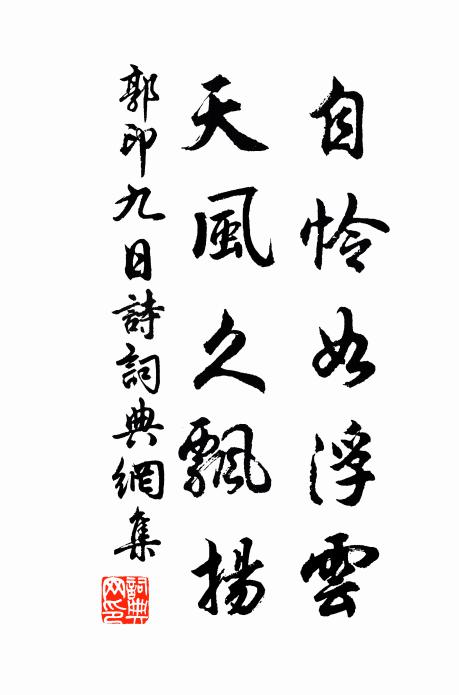 自怜如浮雲
天風久飄揚
郭印九日詩詞典網集
詞典網印